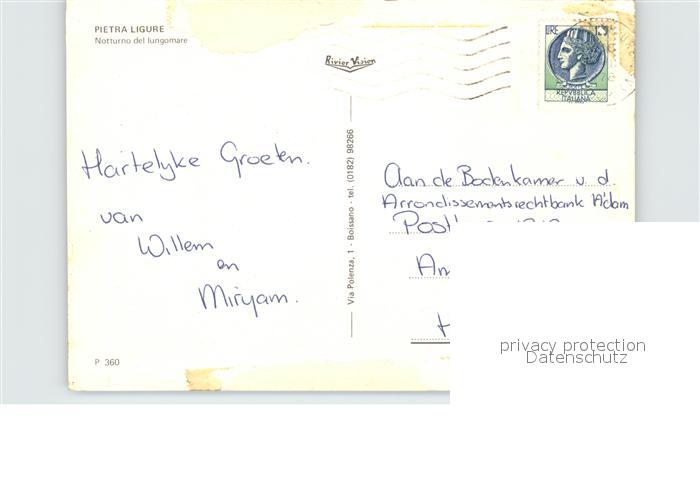 PIETRA LIGURE
Notturno del lungomare
Rivier Vision
LIRE
REPVBBLICA
ITALIANA
Hartelyke Groeten.
van
Willem
en
Miryam.
Via Polenza, 1 - Boissano - tel. (0182) 98266
Aan de Bodenkamer v d.
Arrondissementsrechtbank A'dam
P 360
privacy protection
Datenschutz